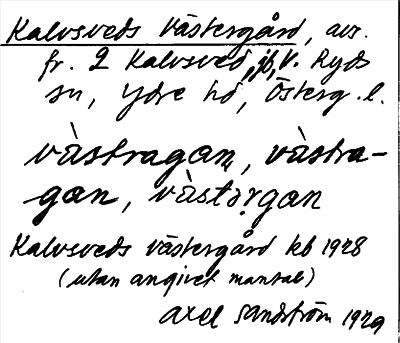 Kalvsveds Västergård, avs.
fr. 2 Kalvsved, jb, V. Ryds
sn, Ydre hd, Österg. l.
vàstragan, vàstra-
gan, vàstərgan
Kalvsveds västergård kb 1928
(utan angivet mantal)
Axel Sandström 1929